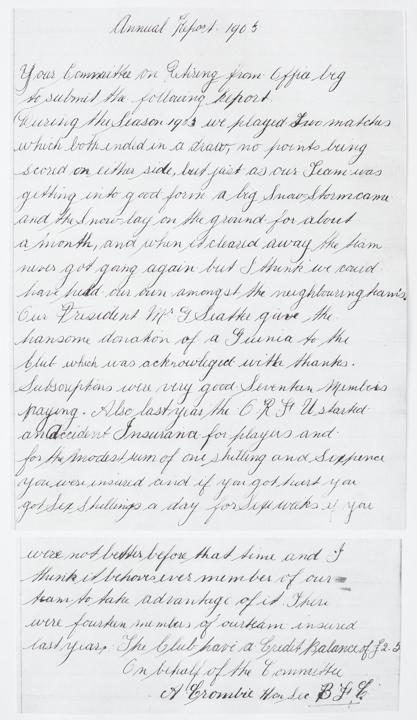 Annual Report 1903
Your Committee on Retiring from Office beg
to submit the following Report.
During the Season 1903 we played Two matches
which both ended in a draw, no points being
scored on either side, but just as our Team was
getting into good form a big Snow Storm came
and the Snow lay on the ground for about
a month, and when it cleared away the team
never got gang again but I think we could
have held our own amongst the neighbouring teams.
Our President Mr G give the
hansome donation of a Guinea to the
Club which was acknowliged with thanks.
Subscriptions were very good Seventeen Members
paying. Also last year the O R F U started
an Accident Insurance for players and
for the Modest sum of one shilling and Sixpence
you were insured and if you got hurt you
got Six Shillings a day for Six weeks if you
were not better before that time and I
think it behoves ever member of our
team to take advantage of it. There
were fourteen members of our team insured
last year. The Club have a Credit Balance of
On behalf of the Committee
A Crombie Hon Sec B F C